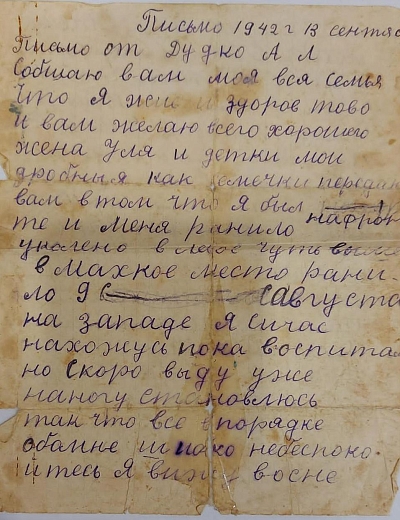 Письмо 1942 г 13 сентяб
Письмо от Дудко А Л
Собшаю вам моя вся семья
что я жив и здоров тово
и вам желаю всего хорошего
жена Уля и детки мои
дробныя как семечки передаю
вам в том что я был
нафрон
те и меня ранило
в махкое место рани-
ло 9 августа
на западе я сичас
нахожусь пока в оспитал
но скоро выду уже
наногу становлюсь
так что все впорядке
обомне небеспоко-
йтесь я вижу восне